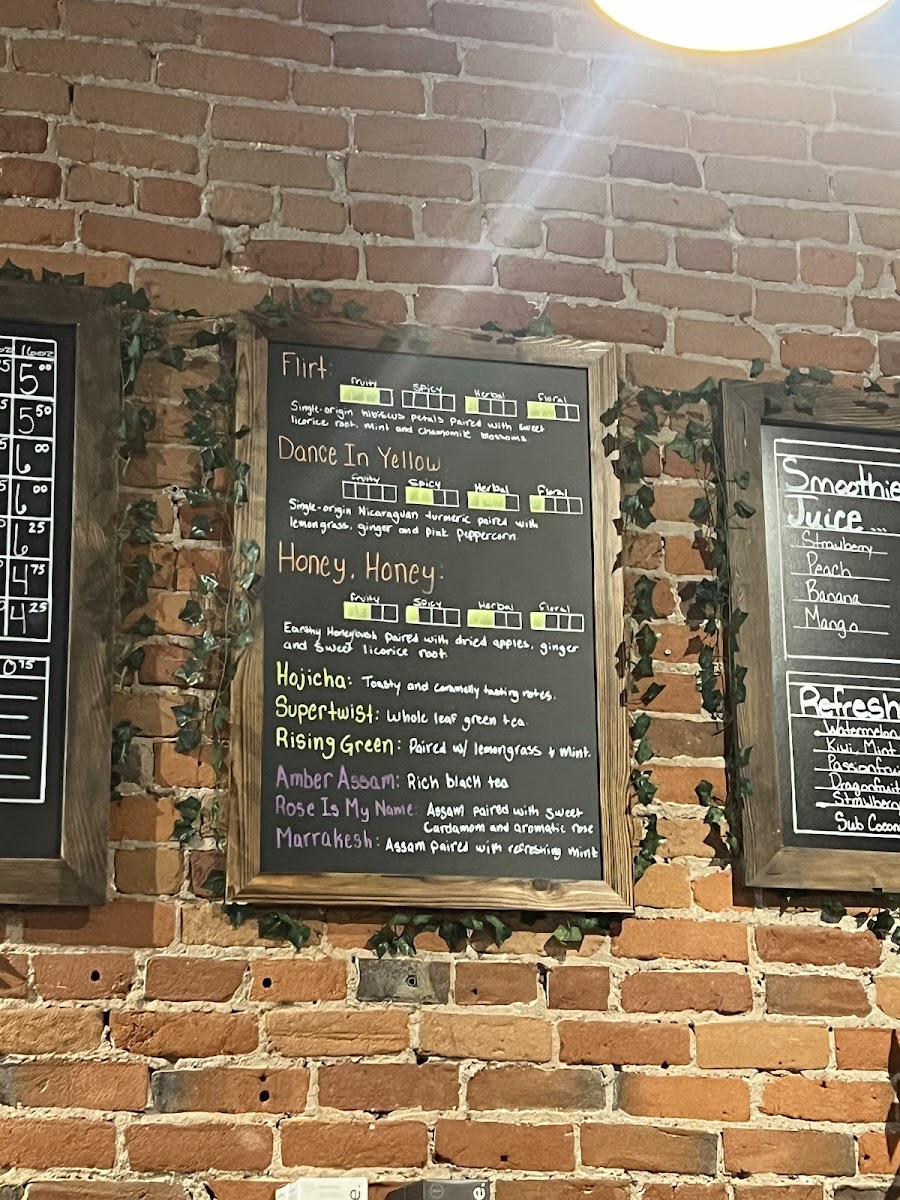 16oz
5.00
5.50
6.00
6.00
6.25
4.75
4.25
0.75
Flirt:
Fruity Spicy Herbal Floral
Single-origin hibiscus petals paired with sweet
licorice root, mint and chamomile blossoms
Dance In Yellow
Fruity Spicy Herbal Floral
Single-origin Nicaraguan turmeric paired with
lemongrass, ginger and pink peppercorn.
Honey, Honey:
Fruity Spicy Herbal Floral
Earthy Honeybush paired with dried apples, ginger
and sweet licorice root.
Hojicha: Toasty and caramelly tasting notes.
Supertwist: Whole leaf green tea.
Rising Green: Paired w/ lemongrass + mint.
Amber Assam: Rich black tea
Rose Is My Name: Assam paired with sweet
Cardamom and aromatic rose
Marrakesh: Assam paired with refreshing mint
Smoothie
Juice...
Strawberry
Peach
Banana
Mango
Refresh
Watermelon
Kiwi, Mint
Passionfrui
Dragonfruit
Strawberry
Sub Cocon